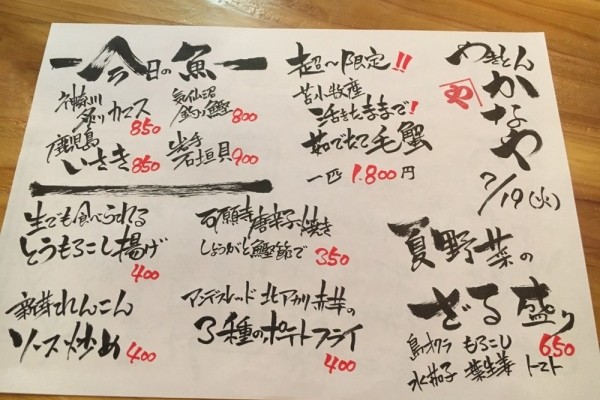 やきとん
かなや
や
7/19(水)
超〜限定!!
苫小牧産
活きたままで!
茹でたて毛蟹
一匹 1.800円
夏野菜の
ざる盛り
650
島オクラ もろこし
水茄子 葉生姜 トマト
今日の魚
神奈川
炙りカマス
850
気仙沼
鰹
800
鹿児島
いさき 850
岩手
石垣貝
900
生でも食べられる
とうもろこし揚げ
400
唐辛子焼き
しょうがと鰹節で 350
新芽れんこん
ソース炒め 400
アンデスレッド 北アカリ 赤芋の
3種のポテトフライ
400